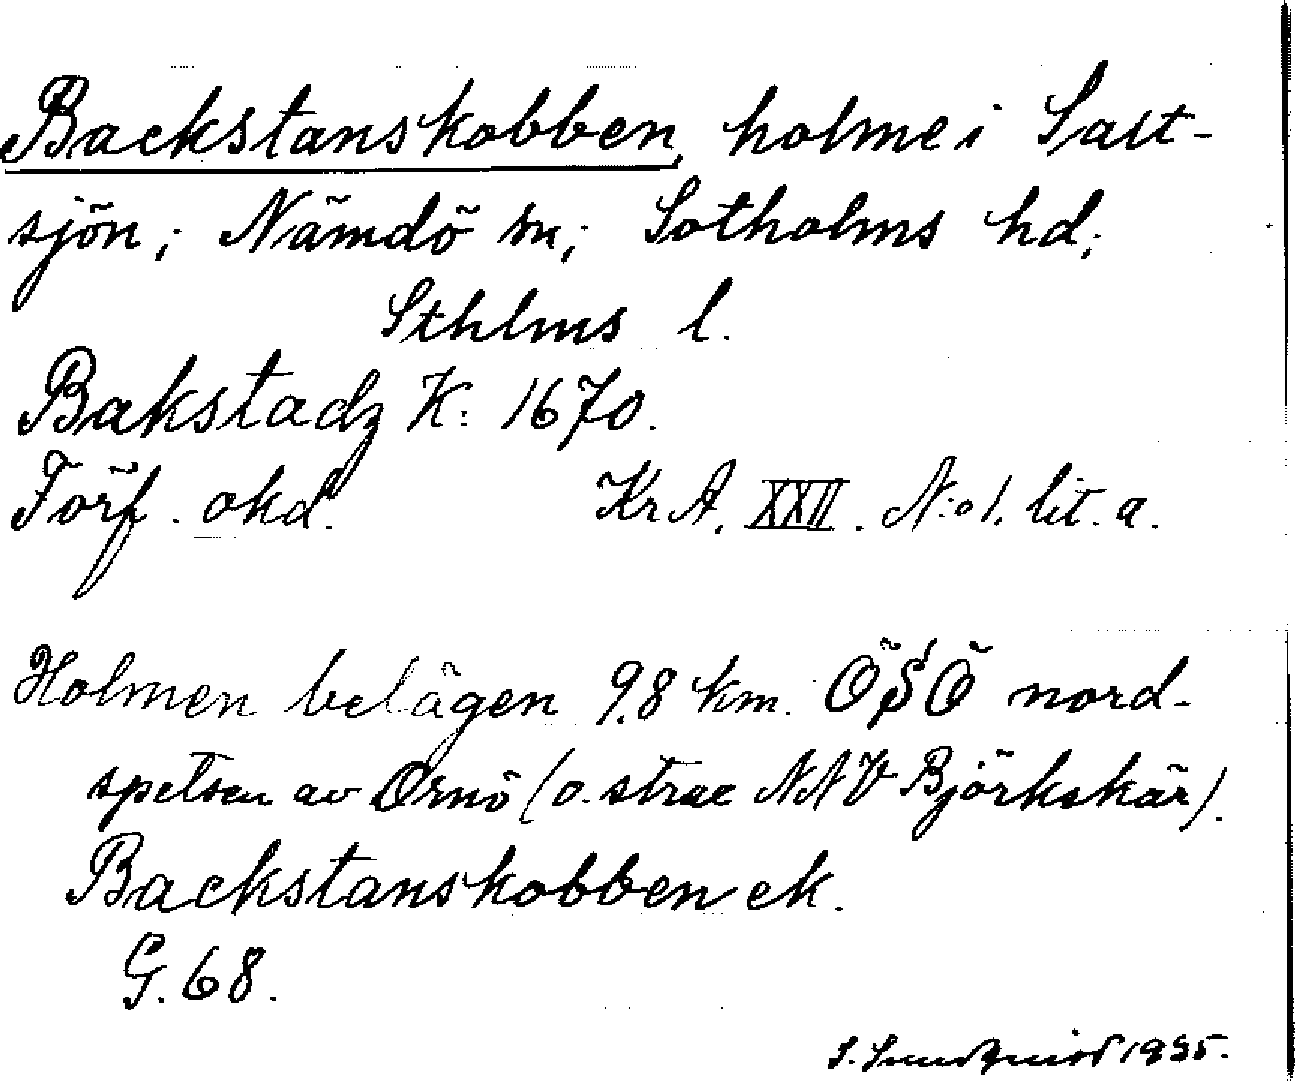 Backstanskobben, holme i Salt-
sjön; Nämdö sn; Sotholms hd;
Sthlms l.
Bakstadz K: 1670.
Förf. okd. KrA. XXII. N:o 1. lit. a.
Holmen belägen 9.8 km. ÖSÖ nord-
spetsen av Ornö (o. strax NNV Björkskär).
Backstanskobben ek.
G. 68.
S. 1935.